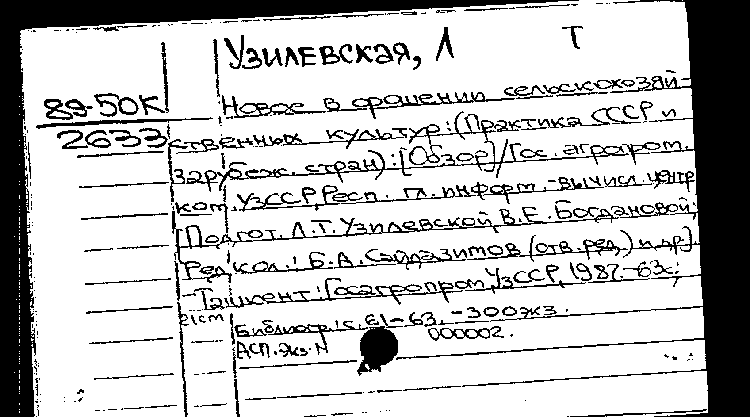 Узилевская, Л Т
89-50К
2633
Новое в орошении сельскохозяй-
ственных культур: (Практика СССР и
зарубеж. стран): [Обзор]/Гос. агропром.
ком. УзССР, Респ. гл. информ.-вычисл. центр
[Подгот. Л.Т. Узилевской, В.Е. Богдановой;
Редкол.: Б.А. Сайдазитов (отв. ред.) и др.].
-Ташкент: Госагропром УзССР, 1987.-63с;
21см
Библиогр.: с. 61-63. -300экз.
АСП. Экз. N 000002.